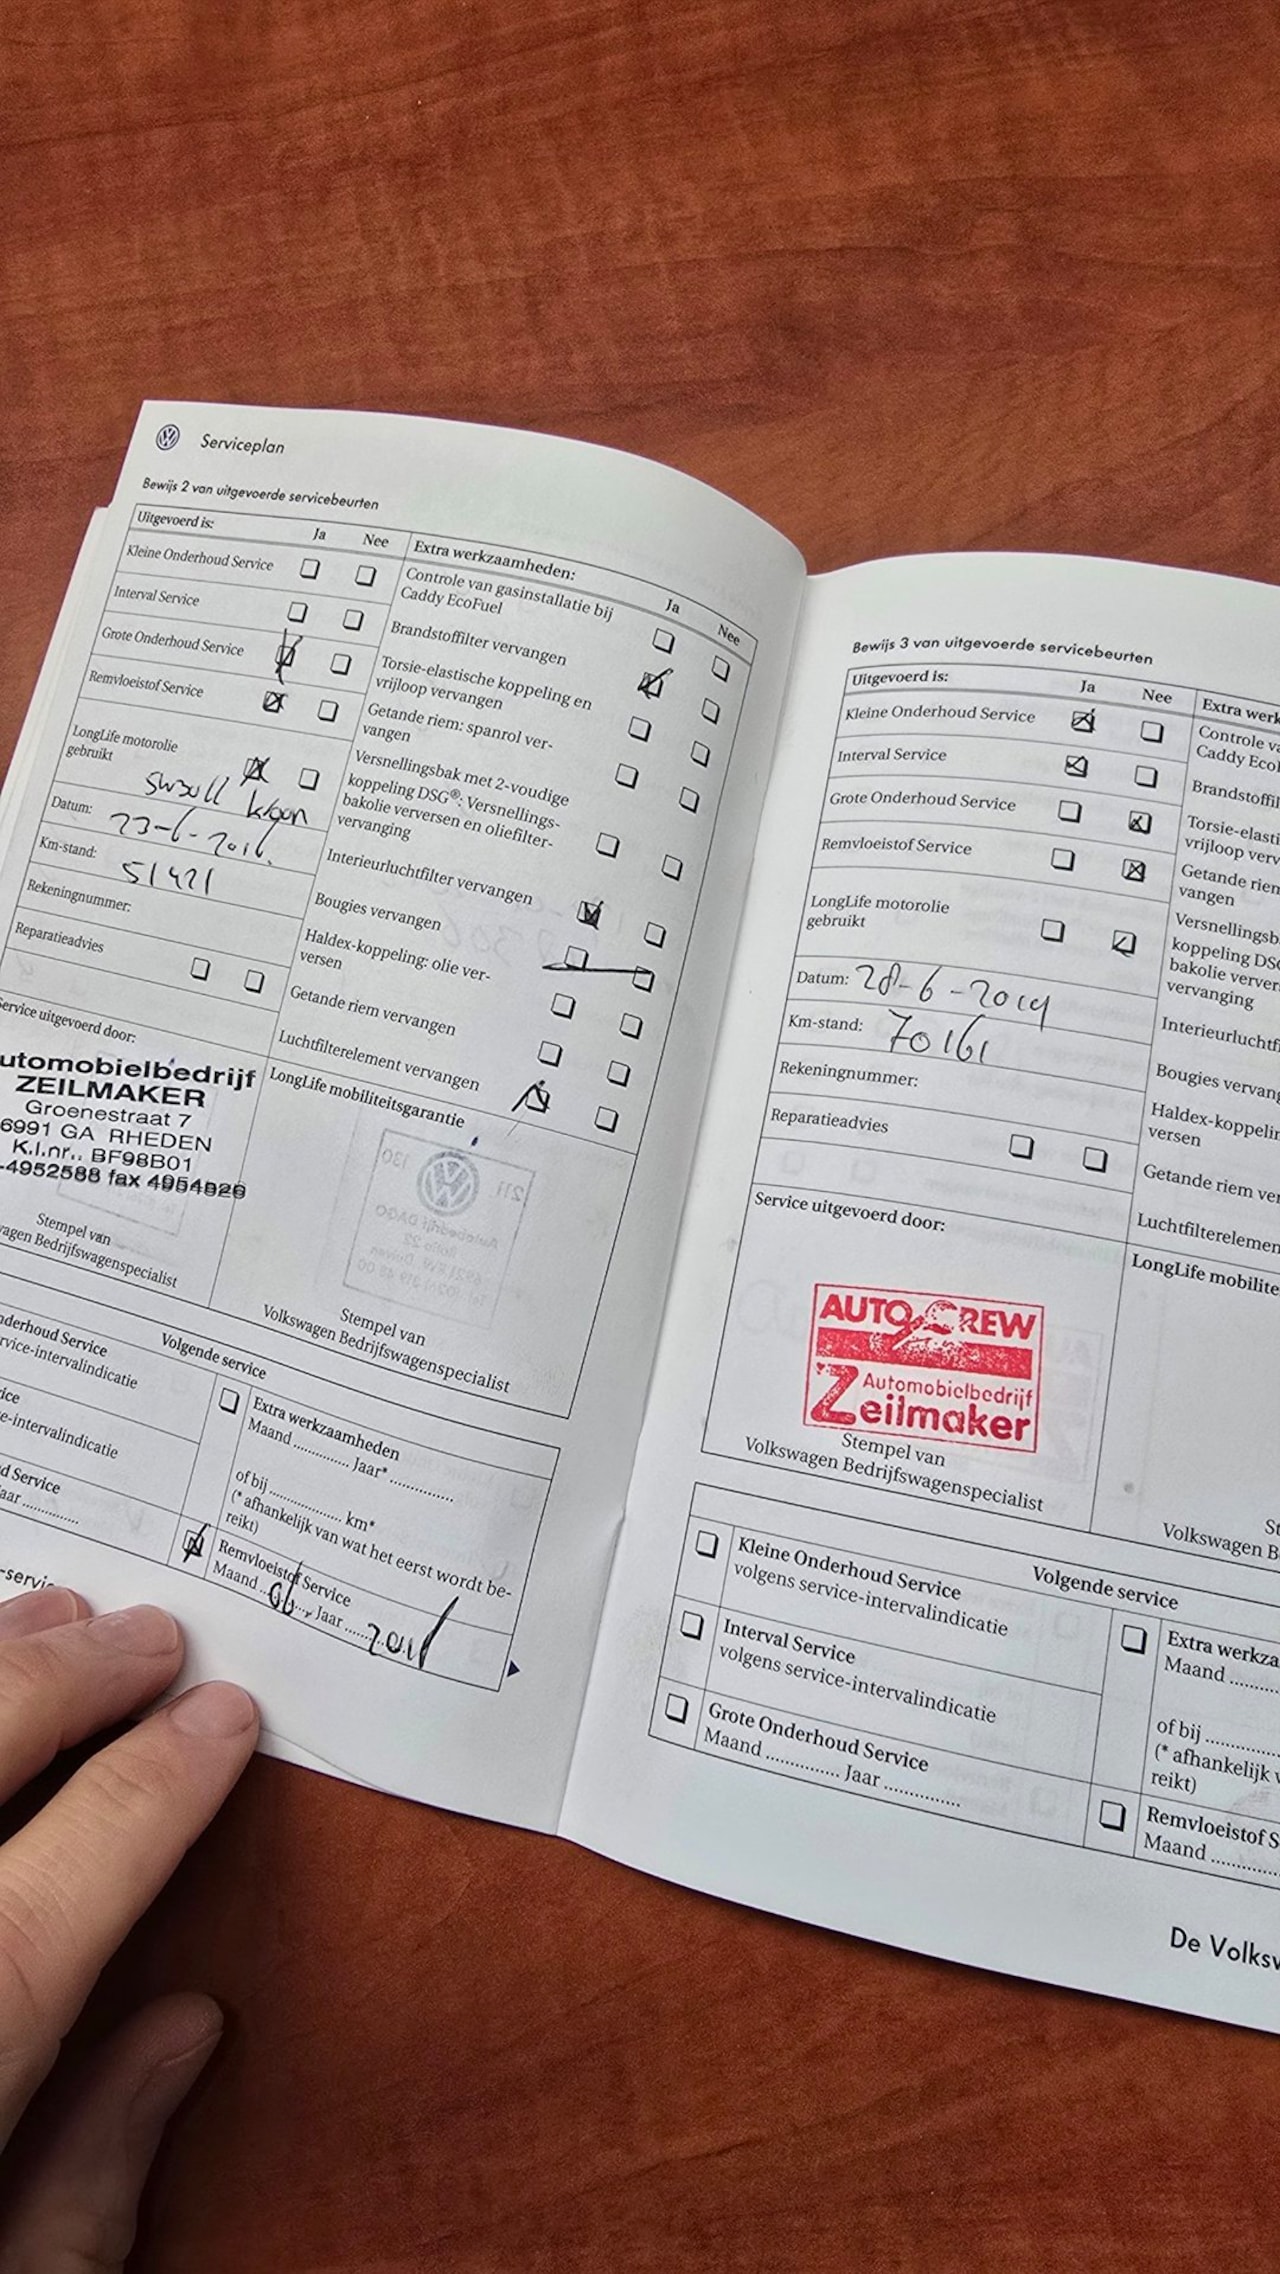 Serviceplan
Bewijs 2 van uitgevoerde servicebeurten
Uitgevoerd is:
Ja
Nee
Kleine Onderhoud Service
Interval Service
Grote Onderhoud Service
Remvloeistof Service
LongLife motorolie
gebruikt
5w30ll kroon
Datum: 23-6-2016.
Km-stand: 51421
Rekeningnummer:
Reparatieadvies
Service uitgevoerd door:
utomobielbedrijf
ZEILMAKER
Groenestraat 7
6991 GA RHEDEN
K.I.nr.. BF98B01
-4952588 fax 4954826
Stempel van
wagen Bedrijfswagenspecialist
Extra werkzaamheden:
Ja
Nee
Controle van gasinstallatie bij
Caddy EcoFuel
Brandstoffilter vervangen
Torsie-elastische koppeling en
vrijloop vervangen
Getande riem: spanrol ver-
vangen
Versnellingsbak met 2-voudige
koppeling DSG®: Versnellings-
bakolie verversen en oliefilter-
vervanging
Interieurluchtfilter vervangen
Bougies vervangen
Haldex-koppeling: olie ver-
versen
Getande riem vervangen
Luchtfilterelement vervangen
LongLife mobiliteitsgarantie
Stempel van
Volkswagen Bedrijfswagenspecialist
Volgende service
nderhoud Service
rvice-intervalindicatie
ice
e-intervalindicatie
d Service
aar ..............
Extra werkzaamheden
Maand .............. Jaar* ................
of bij .................. km*
(* afhankelijk van wat het eerst wordt be-
reikt)
Remvloeistof Service
Maand 06 Jaar 2018
-servic
Bewijs 3 van uitgevoerde servicebeurten
Uitgevoerd is:
Ja
Nee
Kleine Onderhoud Service
Interval Service
Grote Onderhoud Service
Remvloeistof Service
LongLife motorolie
gebruikt
Datum: 28-6-2019
Km-stand: 70161
Rekeningnummer:
Reparatieadvies
Service uitgevoerd door:
AUTO CREW
Automobielbedrijf
Zeilmaker
Stempel van
Volkswagen Bedrijfswagenspecialist
Extra werk
Controle va
Caddy Eco
Brandstoffil
Torsie-elasti
vrijloop verv
Getande riem
vangen
Versnellingsb
koppeling DSG
bakolie verver
vervanging
Interieurluchtf
Bougies vervang
Haldex-koppelin
versen
Getande riem ver
Luchtfilterelemen
LongLife mobilite
St
Volkswagen B
Volgende service
Kleine Onderhoud Service
volgens service-intervalindicatie
Interval Service
volgens service-intervalindicatie
Grote Onderhoud Service
Maand .............. Jaar ..............
Extra werkza
Maand ........
of bij ..........
(* afhankelijk v
reikt)
Remvloeistof S
Maand ..........
De Volksw